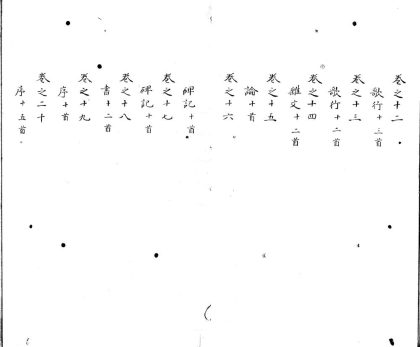 卷之十二
歌行十三首
卷之十三
歌行十二首
卷之十四
雜文十二首
卷之十五
論十首
卷之十六
碑記十首
卷之十七
碑記十首
卷之十八
書十二首
卷之十九
序十首
卷之二十
序十五首